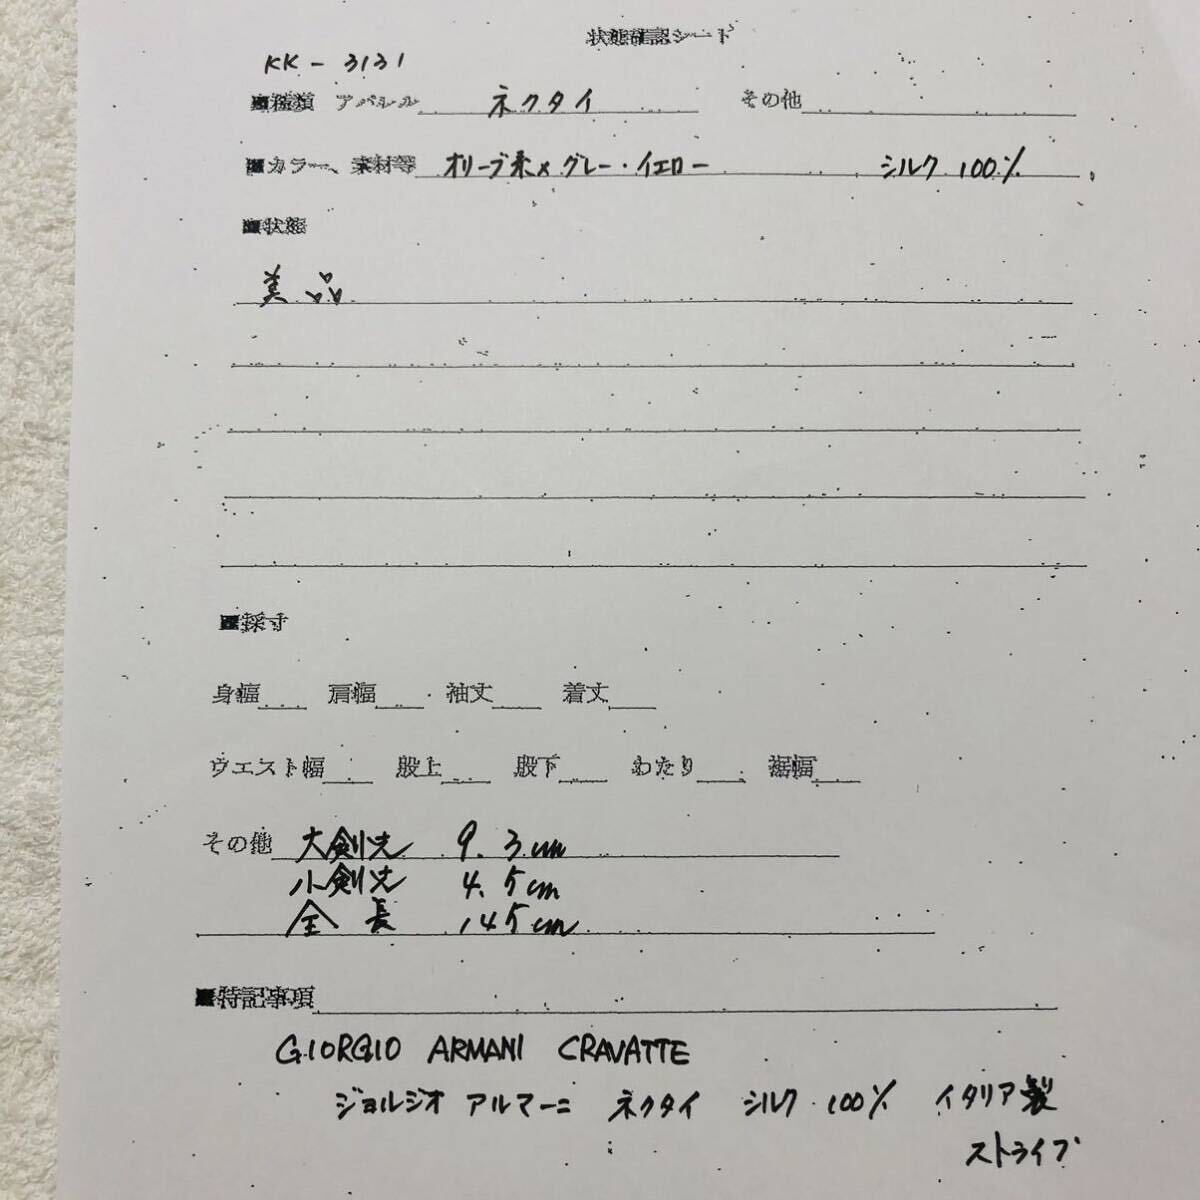 状態確認シート
KK-3131
■種類 アパレル ネクタイ その他
■カラー、素材等 オリーブ系×グレー・イエロー シルク 100%
■状態
美品
■採寸
身幅 肩幅 袖丈 着丈
ウエスト幅 股上 股下 わたり 裾幅
その他 大剣先 9.3cm
小剣先 4.5cm
全長 145cm
■特記事項
GIORGIO ARMANI CRAVATTE
ジョルジオ アルマーニ ネクタイ シルク 100% イタリア製
ストライプ